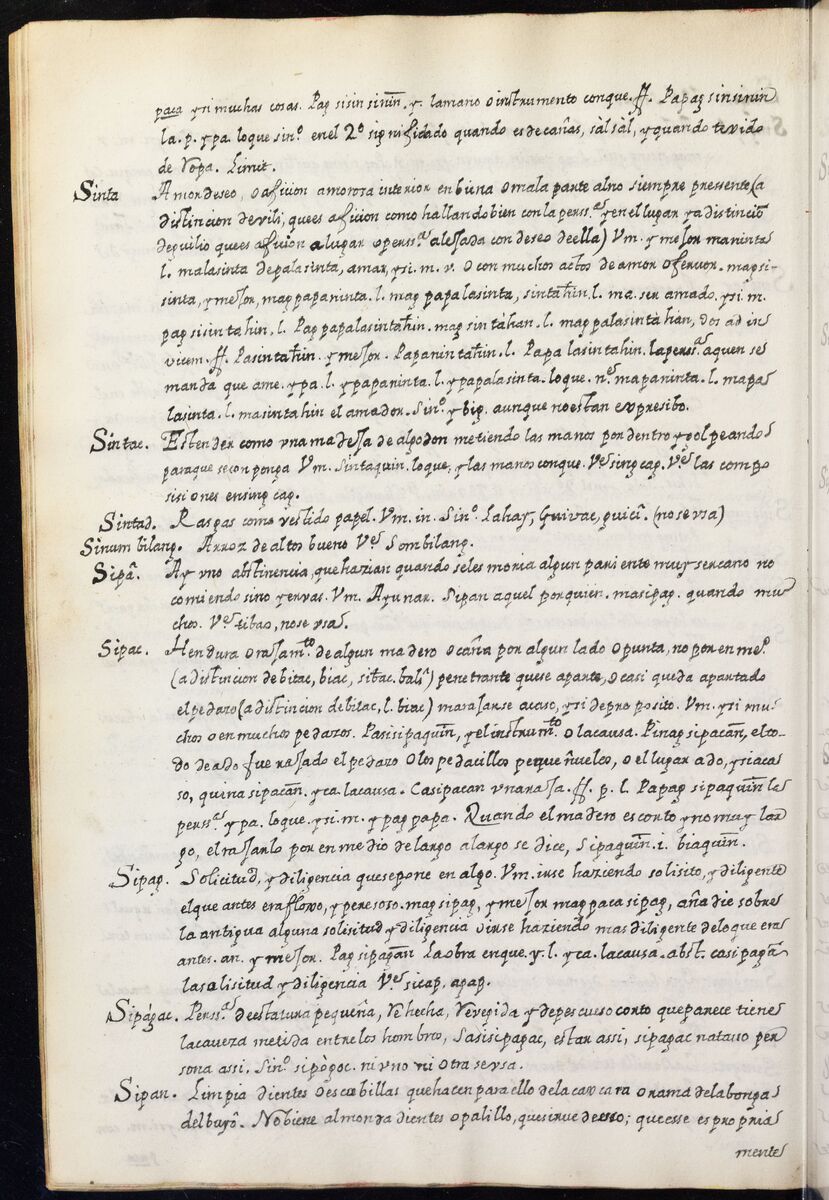 paca ysi muchas cosas. Pag sisin sinin̄. y. lamano o instrumento conque. ff. Papag sinsinin
la. p. ypa. loque sin.º enel 2º significado quando es de cañas, sàl sàl, y quando tevido
de Ropa. Limit.
Sinta Amor deseo, o aficion amorosa interior en buena o mala parte al no siempre pressente (a
distincion de vili, que es aficion como hallandobien con la perss.ª y en el lugar y a distinciō
de quilio que es aficion a lugar o perss.ª alejada con deseo de ella) Vm. y mejor maninta
l. malasinta de palasinta, amar, ysi. m. v. o con muchos actos de amor o fervor. magsi-
sinta, y mejor, mag papaninta. l. mag papalasinta, sintahin. l. ma. ser amado. ysi. m.
pag sisintahin, l. Pag papalasintahin. mag sintahan. l. mag palasintahan, dos ad in
vicem. ff. Pasintahin. y mejor. Papanintahin. l. Papalasintahin. la perss.ª a quien se
manda que ame. ypa. l. ypapaninta. l. ypapalasinta. loque. n.º mapaninta. l. mapa
lasinta. l. masintahin el amador. Sin.º ybig. aunque no estan expresibo.
Sintac. Estender como vna madeja de algodon metiendo las manos por dentro y golpeando
paraque se componga Vm. Sintaquin. loque; y las manos conque. Ve sing cag. Ve las compo
sisiones en sing cag.
Sintad. Rasgas como vestido papel. Vm. in. Sin.º Lahay, Guivac, guici. (no se vsa)
Sinumbilang. Arroz de altos bueno Ve Sombilang.
Sipâ. Ay vno abstinencia, que hazian quando seles moria algun pariente muy sercano no
comiendo sino yervas. Vm. Ayunar. Sipan aquel por quien. masipag. quando mu
chos. Ve tibao, no se vsa.
Sipac. Hendura o rajam.to de algun madero o caña por algun lado o punta, no por en me.º
(a distincion de bitac, biac, sitac. bali) penetrante que se aparte, o casi queda apartado
el pedazo (a distincion debitac, l. biac) marajarse acaso, ysi de proposito. Vm. ysi mu
chos o en muchos pedazos. Pasisipaquin, y el instrum.to o la causa. Pinagsipacan, el to-
do de a do fue rajado el pedazo o los pedacillos pequeñuelos, o el lugar ado, ysi aca
so, quinasipacan. yca. la causa. Casipacan vna raja. ff. p. l. Papag sipaquin la
perss.ª ypa. loque. ysi. m. y pag papa. Quando el madero es corto y no muy lar
go, el rajarlo por en medio de largo a largo se dice, Sipaquin. i. biaquin.
Sipag. Solicitud, y diligencia que se pone en algo. Vm. irse haziendo solisito, y diligente
el que antes era floxo, y peresoso. mag sipag, y mejor mag paca sipag, añadie sobre
la antigua alguna solisitud y diligencia o irse haziendo mas diligente de lo que era
antes. an. y mejor. Pag sipagan La obra en que. y. l. yca. la causa. abst. casipagā
la solisitud y diligencia Ve sicap, apap.
Sipágac. Perss.ª de estatura pequeña, Rehecha, Recogida y de pescueso corto que parece tiene
la caveza metida entre los hombros, Sasisipagac, estar assi, sipagac na tauo per
sona assi. Sin.º sipògoc. ni vno ni otra se vsa.
Sipan. Limpia dientes o escobillas que hacen para ello de la caxcara o rama de la bonga
del buyô. No biene al monda dientes o palillo, que sirue de esso; que esse es propria
mente